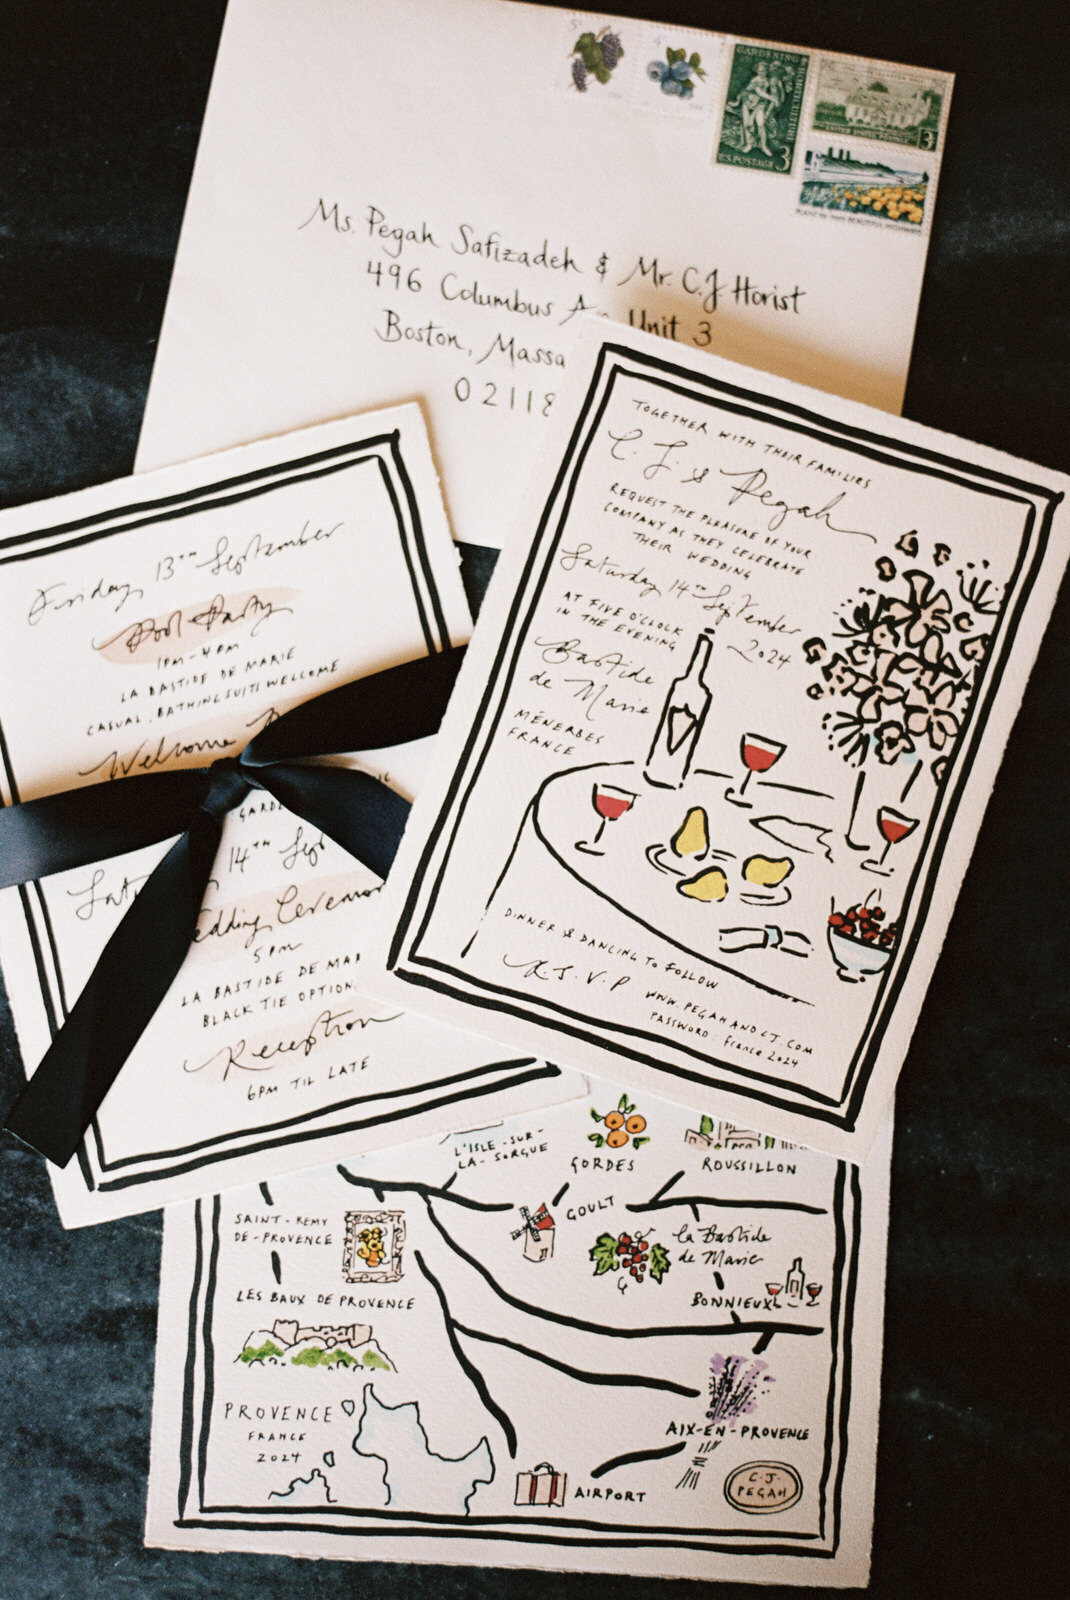 GARDENING
HORTICULTURE
U.S. POSTAGE 3
3
Ms. Pegah Safizadeh & Mr. C.J Horist
496 Columbus Av Unit 3
Boston, Massa
02118
TOGETHER WITH THEIR FAMILIES
C.J. & Pegah
REQUEST THE PLEASURE OF YOUR
COMPANY AS THEY CELEBRATE
THEIR WEDDING
Saturday 14TH September
2024
AT FIVE O'CLOCK
IN THE EVENING
Bastide
de Marie
MÉNERBES
FRANCE
DINNER & DANCING TO FOLLOW
R.S.V.P
WWW.PEGAHANDCJ.COM
PASSWORD: france 2024
Friday 13TH September
Pool Party
1PM-4PM
LA BASTIDE DE MARIE
CASUAL, BATHING SUITS WELCOME
Welcome
GARDE
Satu 14TH Sept
edding Ceremon
5PM
LA BASTIDE DE MAR
BLACK TIE OPTION
Reception
6PM TIL LATE
L'ISLE-SUR-
LA-SORGUE
GORDES
ROUSSILLON
SAINT-REMY
DE-PROVENCE
GOULT
la Bastide
de Marie
LES BAUX DE PROVENCE
BONNIEUX
PROVENCE
FRANCE
2024
AIX-EN-PROVENCE
AIRPORT
C.J.
PEGAH